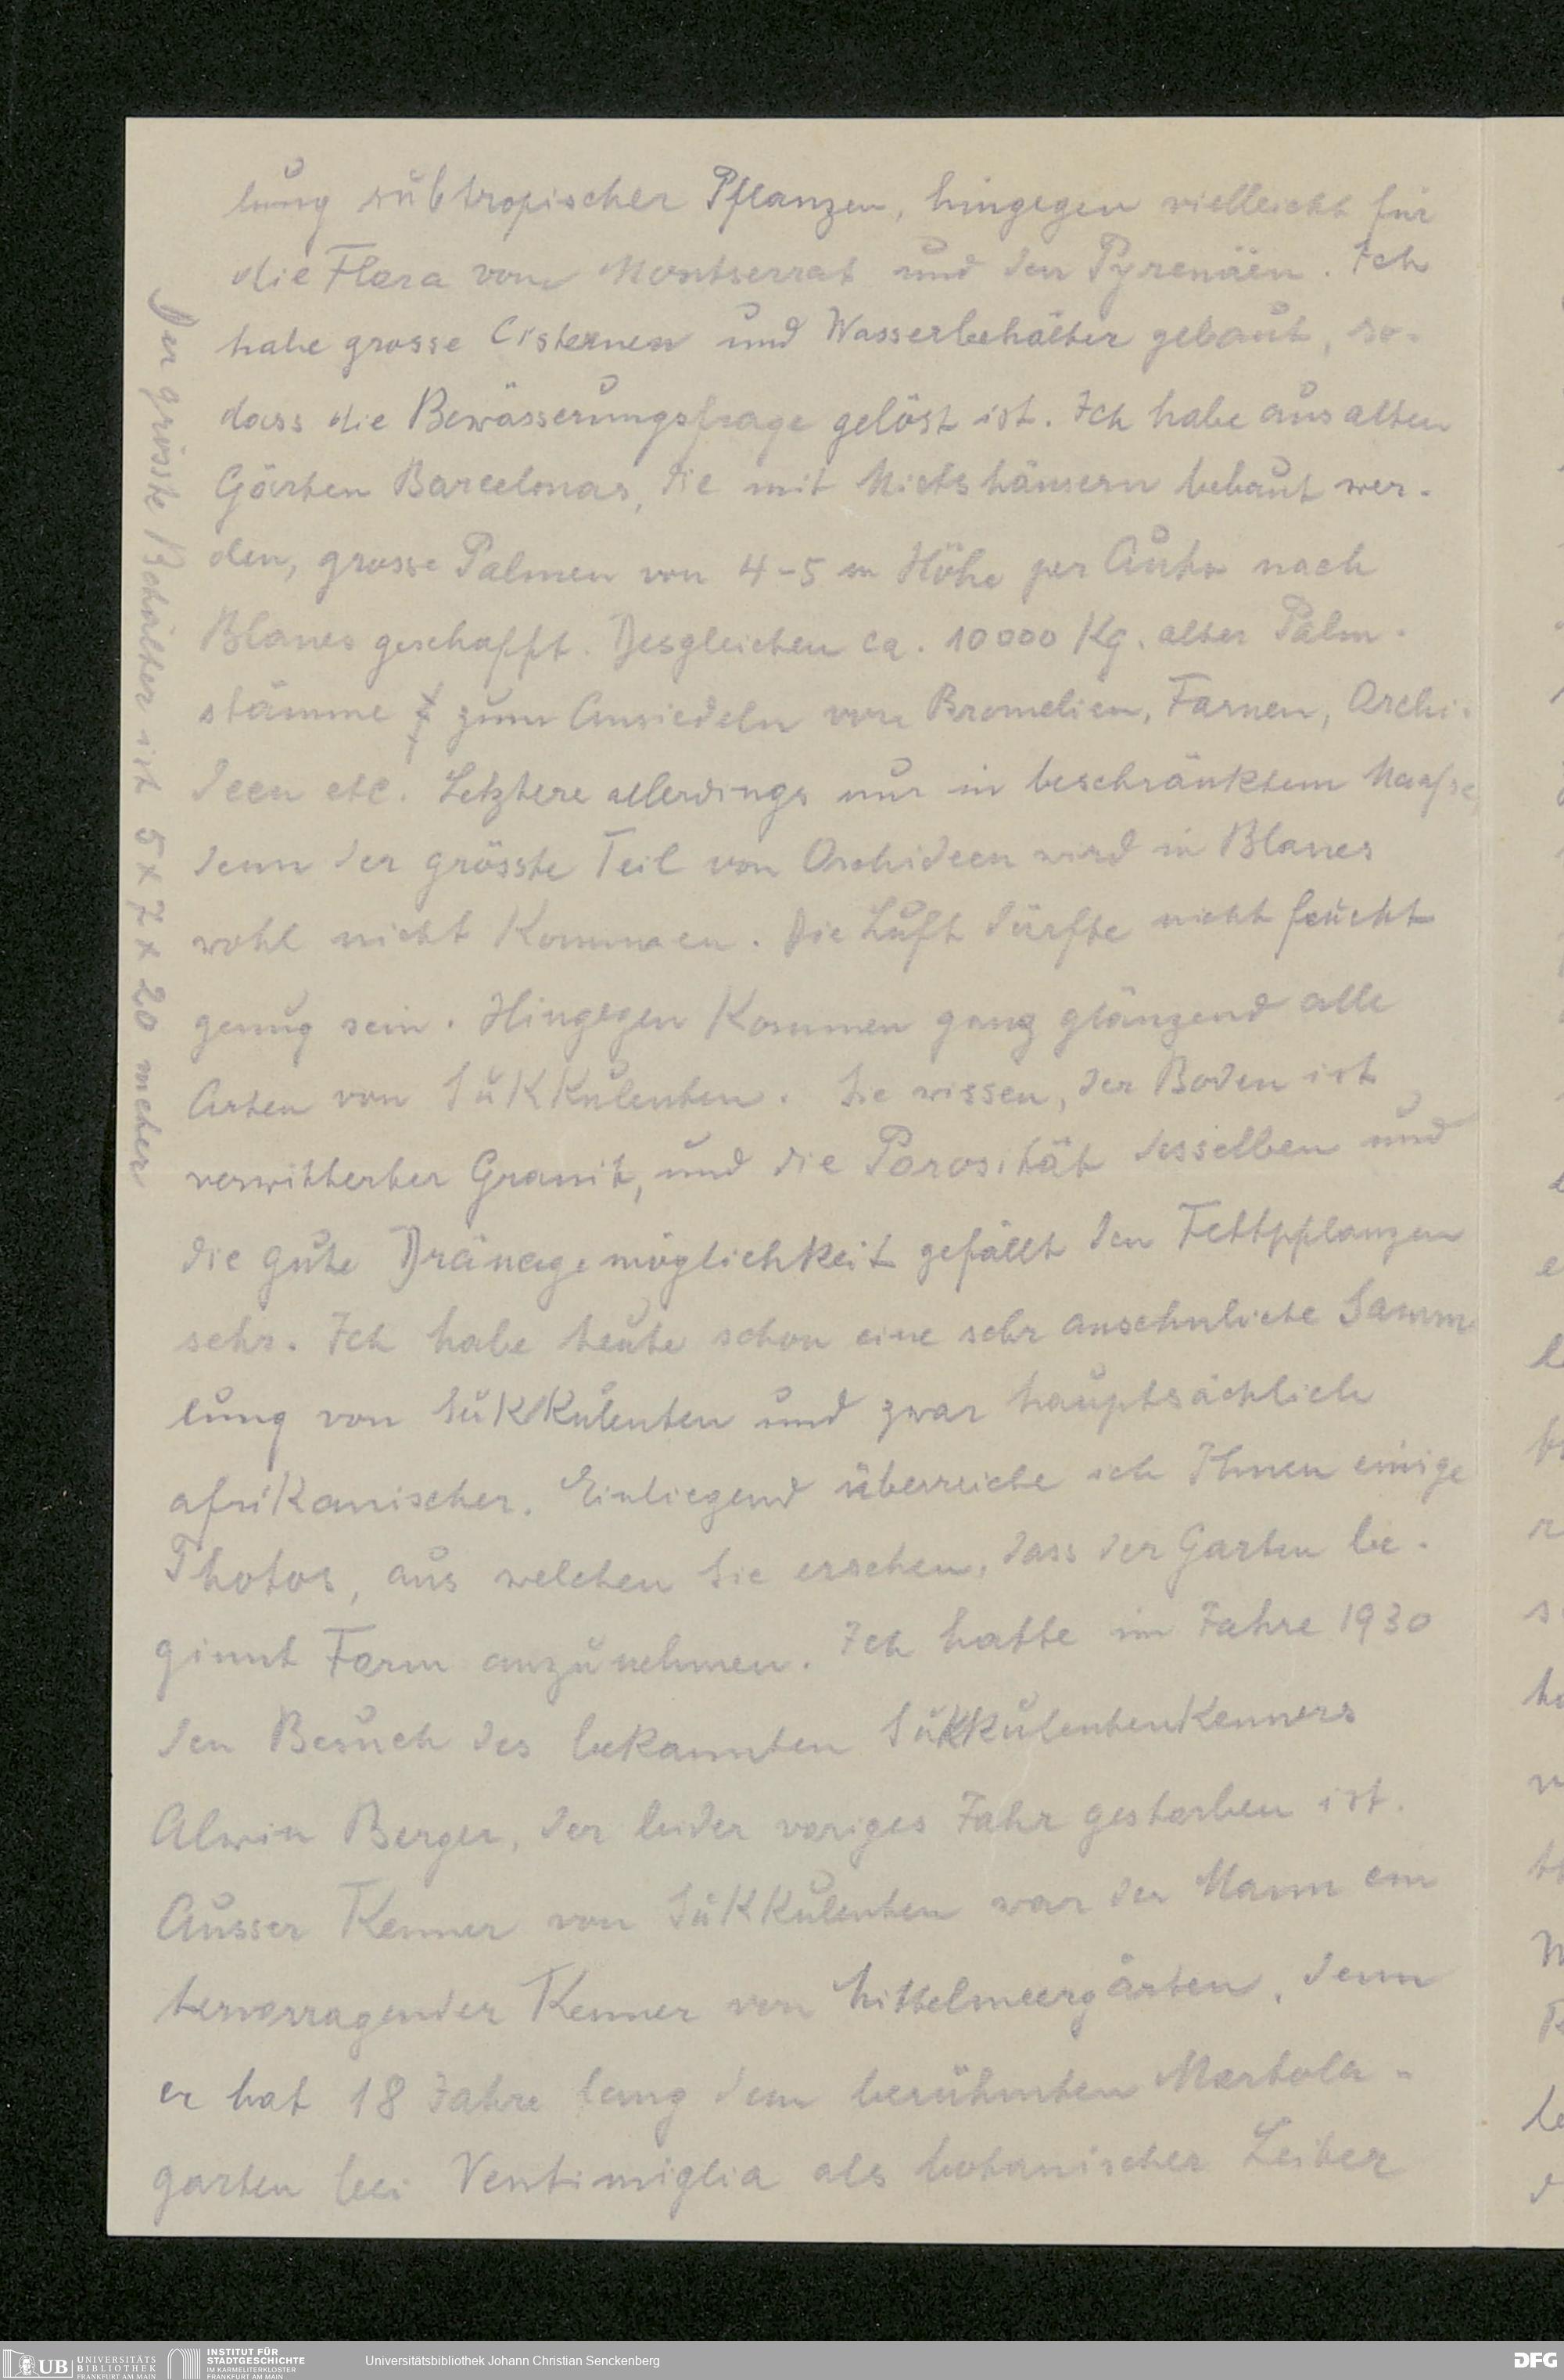 lung subtropischer Pflanzen, hingegen vielleicht für
die Flora von Montserrat und den Pyrenäen. Ich
habe grosse Cisternen und Wasserbehälter gebaut, so-
dass die Bewässerungsfrage gelöst ist. Ich habe aus alten
Gärten Barcelonas, die mit Mietshäusern bebaut wer-
den, grosse Palmen von 4-5 m Höhe per Auto nach
Blanes geschafft. Desgleichen ca. 10000 Kg. alter Palm-
stämme zum Ansiedeln von Bromelien, Farnen, Orchi-
deen etc. Letztere allerdings nur in beschränktem Maaße,
denn der grösste Teil von Orchideen wird in Blanes
wohl nicht Kommen. Die Luft dürfte nicht feucht
genug sein. Hingegen Kommen ganz glänzend alle
Arten von SuKKulenten. Sie wissen, der Boden ist
verwitterter Granit, und die Porosität desselben und
die gute Dränagemöglichkeit gefällt den Fettpflanzen
sehr. Ich habe heute schon eine sehr ansehnliche Samm-
lung von SuKKulenten und zwar hauptsächlich
afriKanischer. Einliegend überreiche ich Ihnen einige
Photos, aus welchen Sie ersehen, dass der Garten be-
ginnt Form anzunehmen. Ich hatte im Jahre 1930
den Besuch des beKannten SuKKulentenKenners
Alwin Berger, der leider voriges Jahr gestorben ist.
Ausser Kenner von SuKKulenten war der Mann ein
hervorragender Kenner von Mittelmeergärten, denn
er hat 18 Jahre lang dem berühmten Mortola-
garten bei Ventimiglia als botanischer Leiter
Der grösste Behälter ist 5 x 7 x 20 meter
UB UNIVERSITÄTS
BIBLIOTHEK
FRANKFURT AM MAIN
INSTITUT FÜR
STADTGESCHICHTE
IM KARMELITERKLOSTER
FRANKFURT AM MAIN
Universitätsbibliothek Johann Christian Senckenberg
DFG